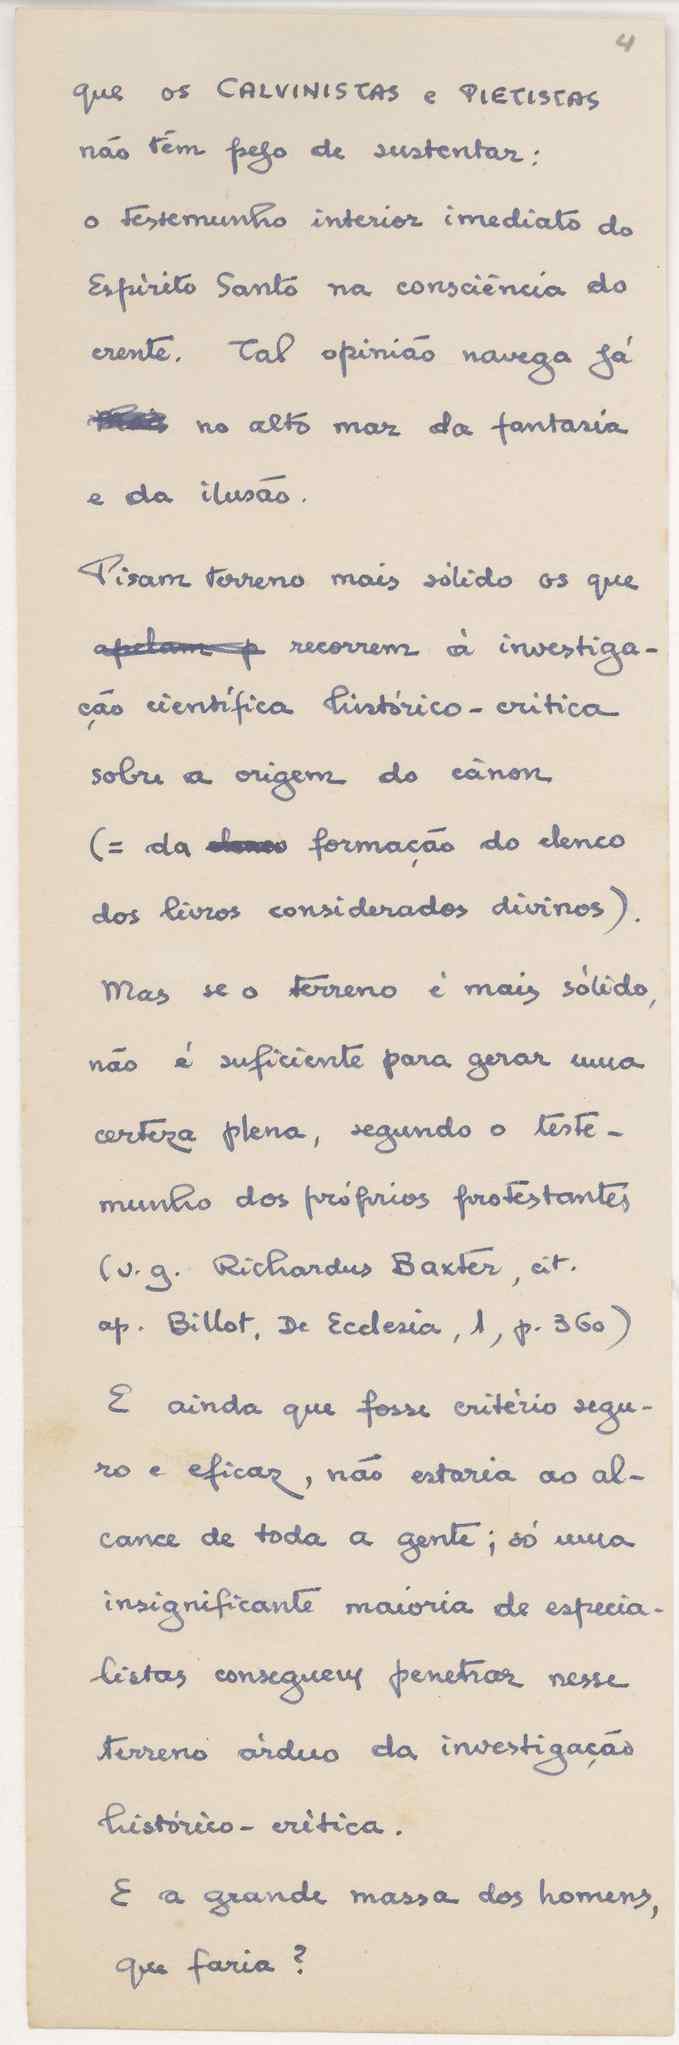 4
que os CALVINISTAS e PIETISTAS
não têm pejo de sustentar:
o testemunho interior imediato do
Espírito Santo na consciência do
crente. Tal opinião navega já
no alto mar da fantasia
e da ilusão.
Pisam terreno mais sólido os que
apelam p recorrem à investiga-
ção científica histórico-crítica
sobre a origem do cânon
(= da elenco formação do elenco
dos livros considerados divinos).
Mas se o terreno é mais sólido,
não é suficiente para gerar uma
certeza plena, segundo o teste-
munho dos próprios protestantes
(v.g. Richardus Baxter, cit.
ap. Billot, De Ecclesia, 1, p. 360)
E ainda que fosse critério segu-
ro e eficaz, não estaria ao al-
cance de toda a gente; só uma
insignificante maioria de especia-
listas conseguem penetrar nesse
terreno árduo da investigação
histórico-crítica.
E a grande massa dos homens,
que faria?